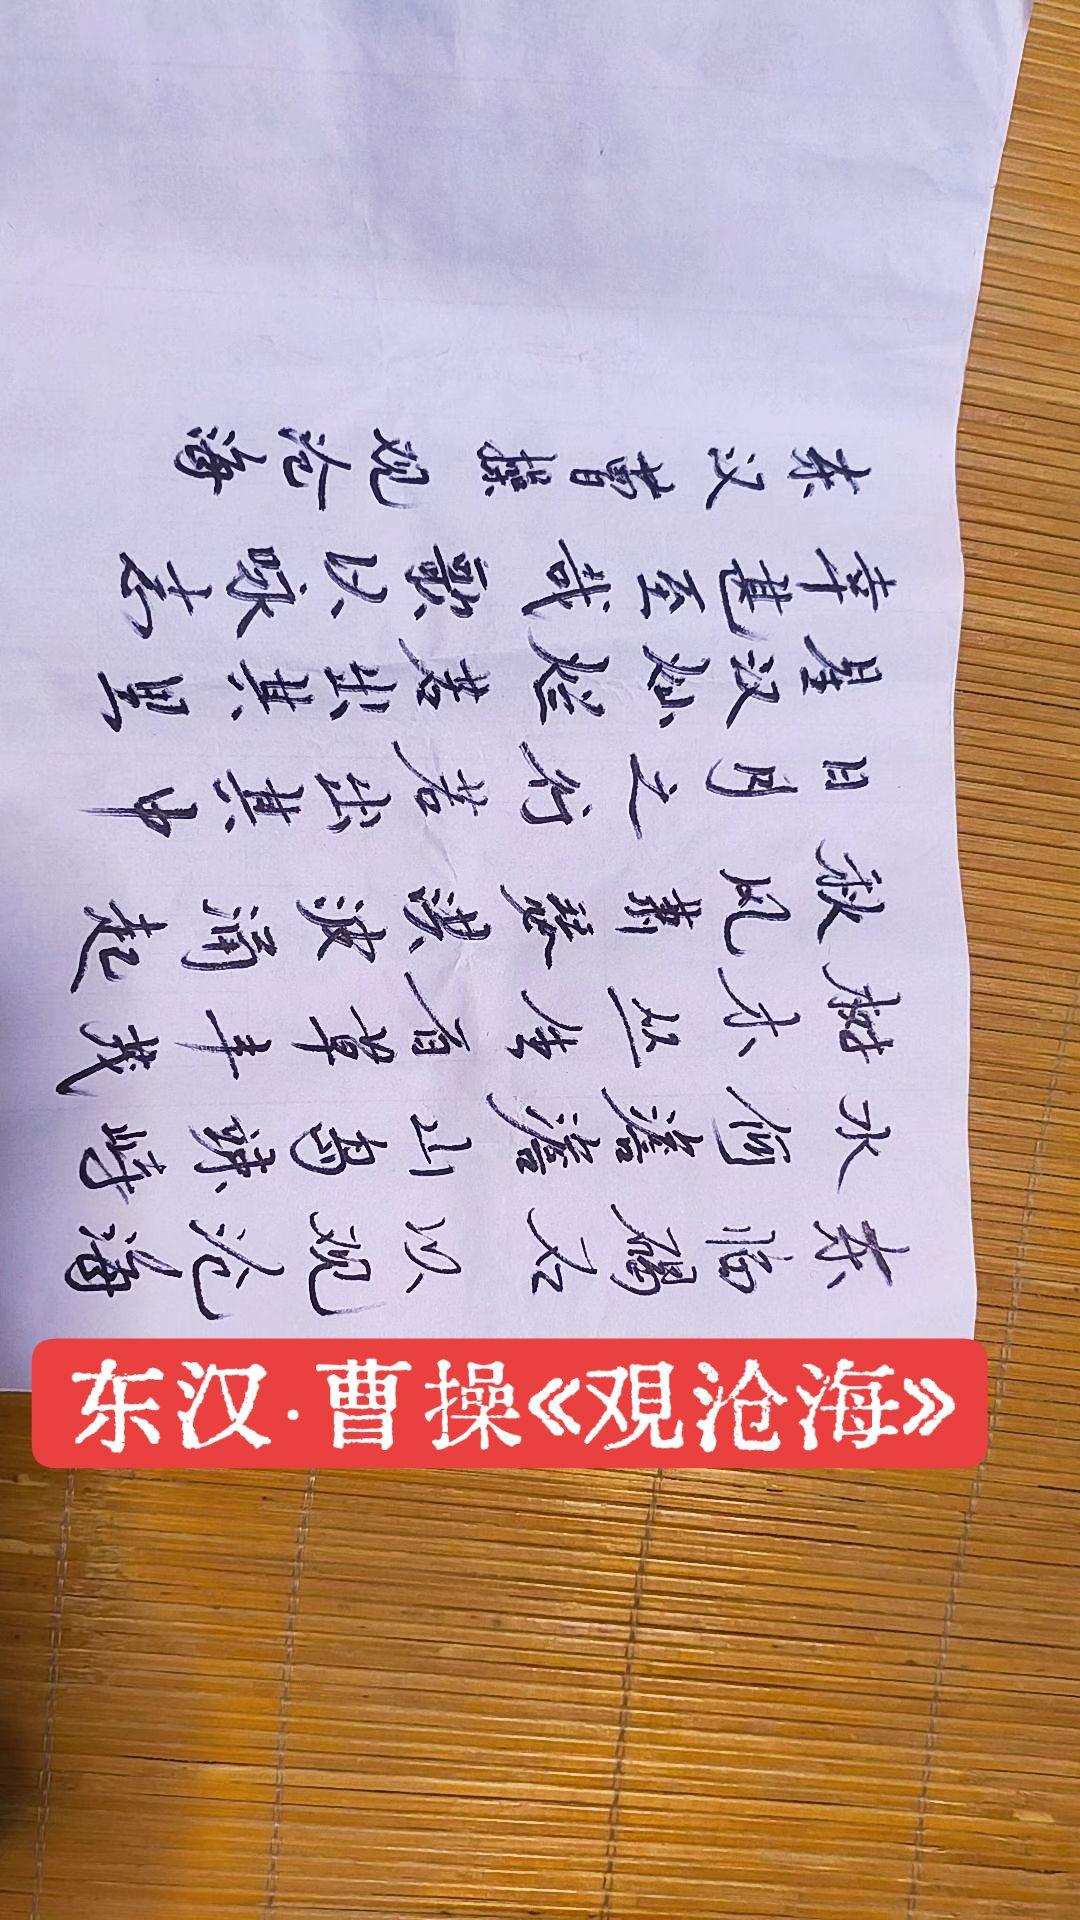 东临碣石以观沧海
水何澹澹山岛竦峙
树木丛生百草丰茂
秋风萧瑟洪波涌起
日月之行若出其中
星汉灿烂若出其里
幸甚至哉歌以咏志
东汉曹操观沧海
东汉·曹操《覌沧海》